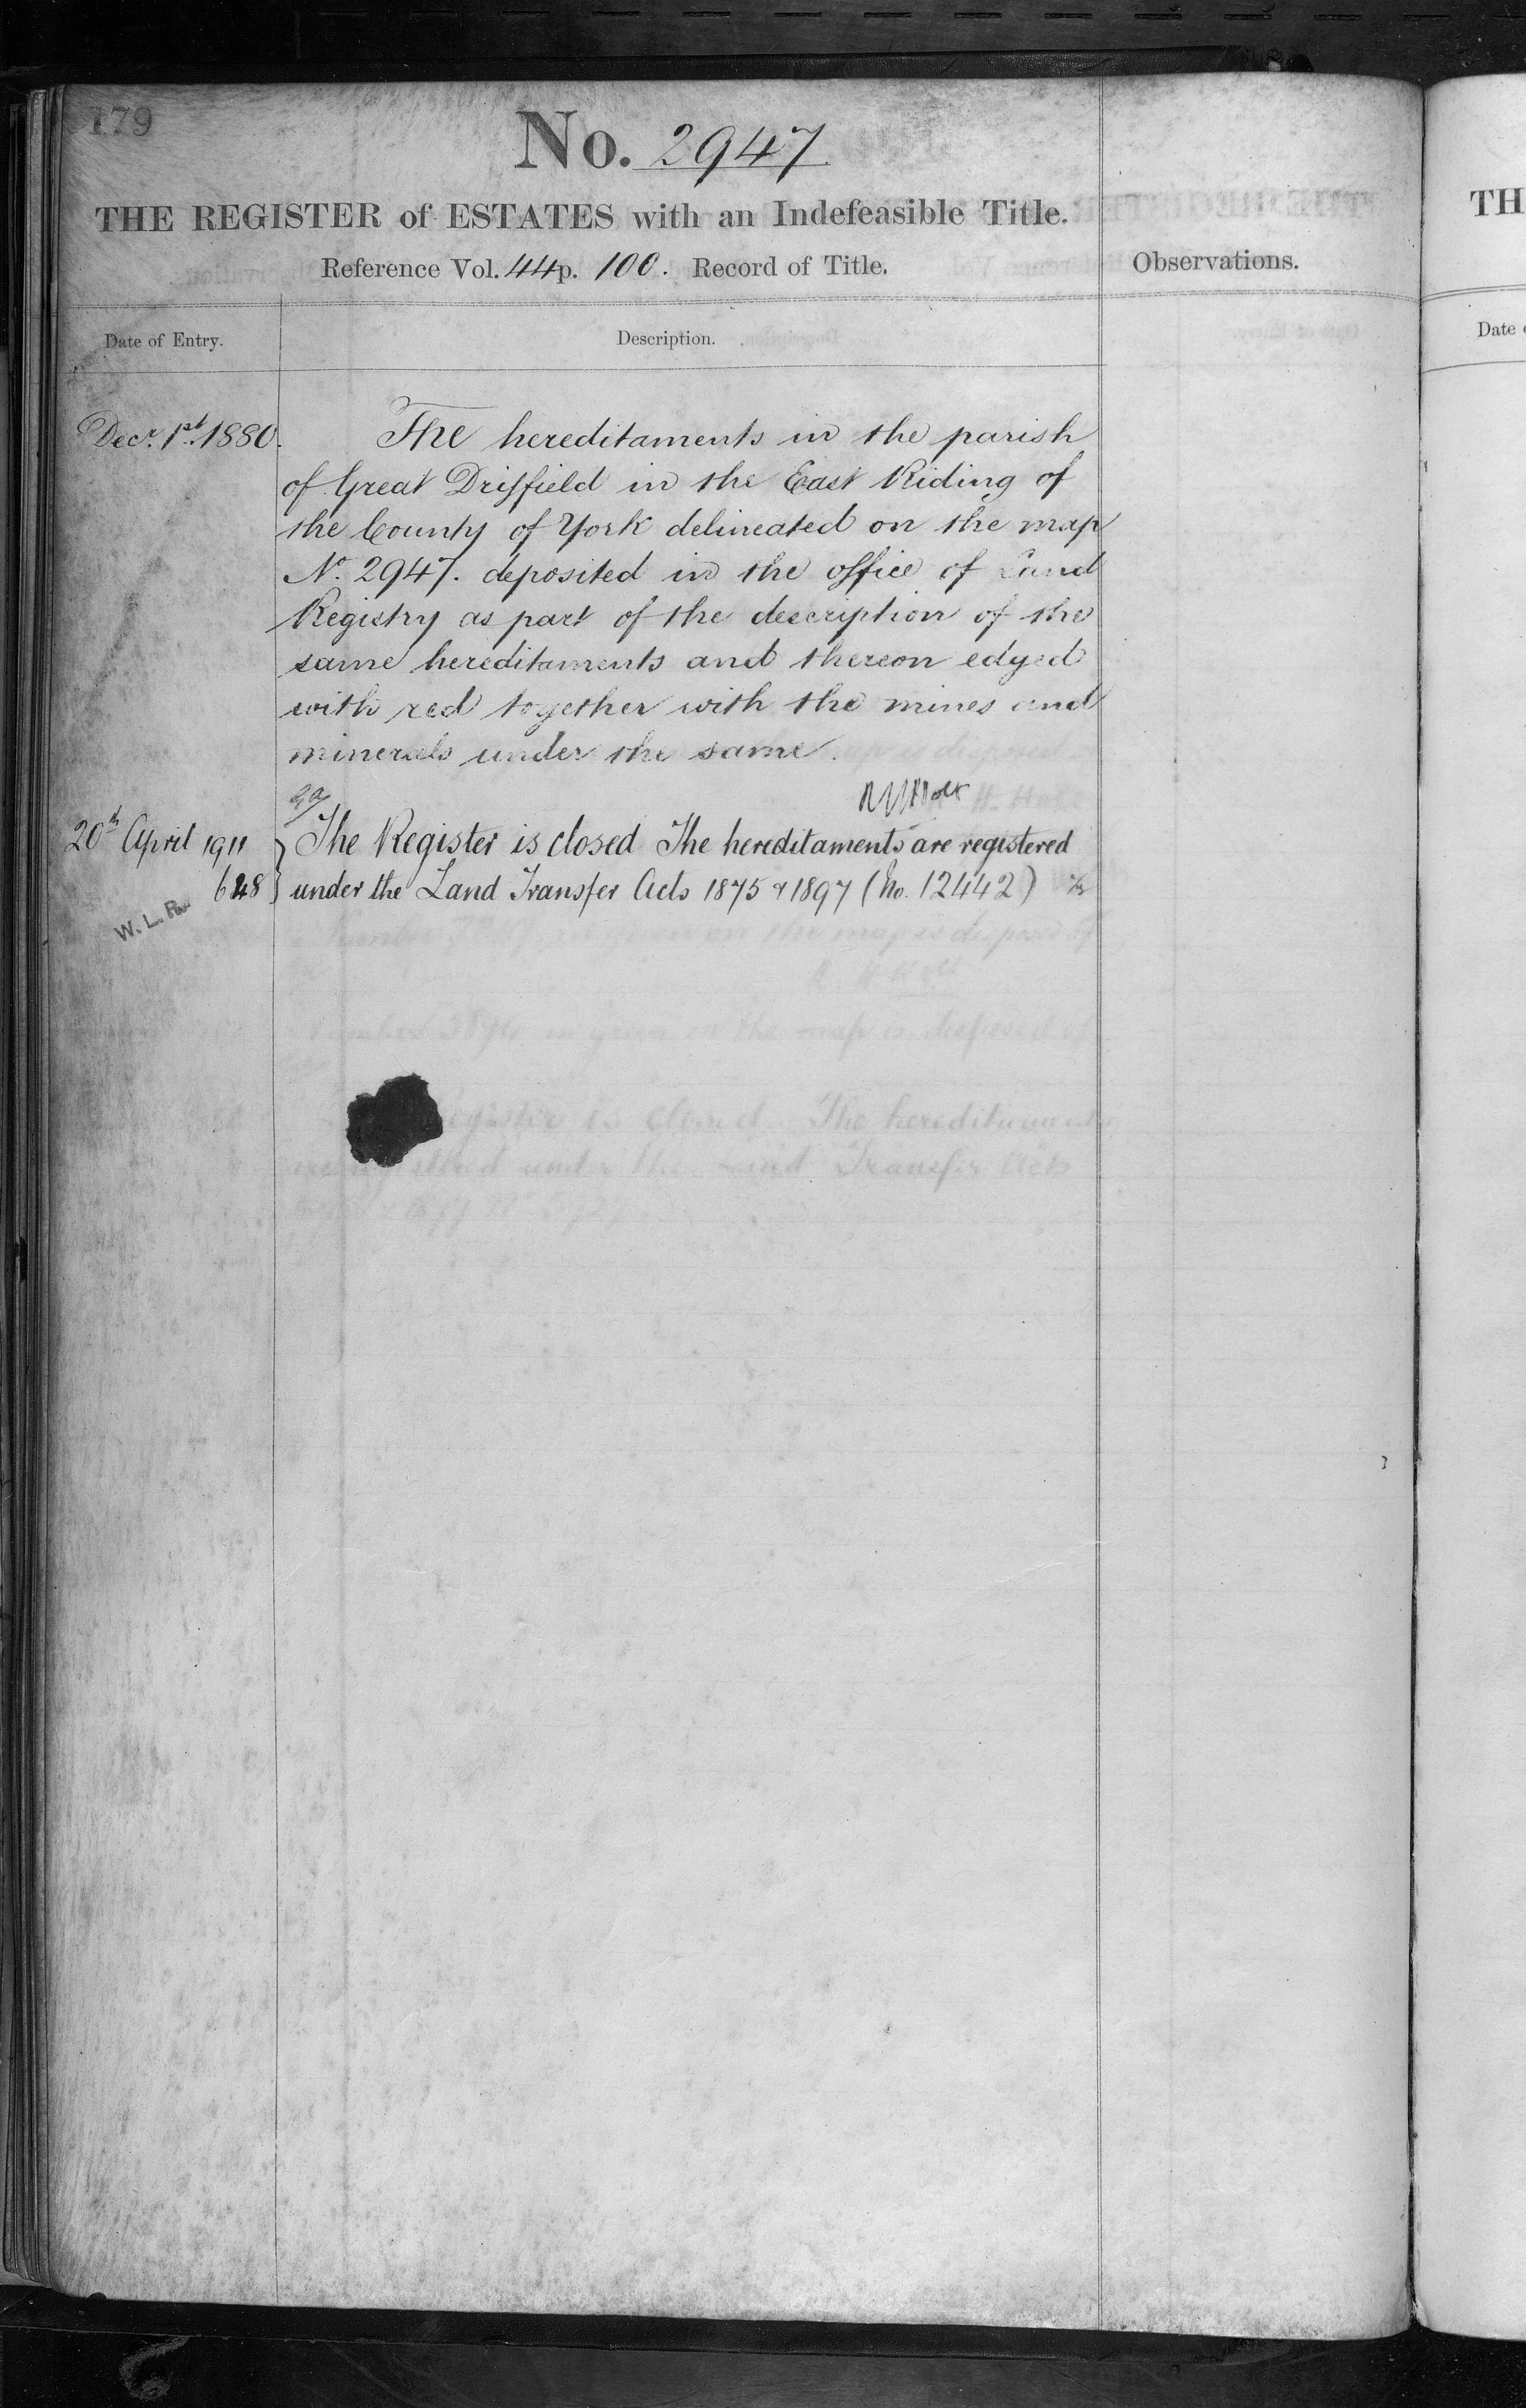 179
No. 2947
THE REGISTER of ESTATES with an Indefeasible Title.
Reference Vol. 44 p. 100. Record of Title.
Observations.
Date of Entry.
Description.
Decr. 1st. 1880.
The hereditaments in the parish
of Great Driffield in the East Riding of
the County of York delineated on the map
No. 2947. deposited in the office of Land
Registry as part of the description of the
same hereditaments and thereon edged
with red together with the mines and
minerals under the same.
20th April 1911
The Register is closed The hereditaments are registered
648
under the Land Transfer Acts 1875 & 1897 (No. 12442)
W. L. R.
TH
Date